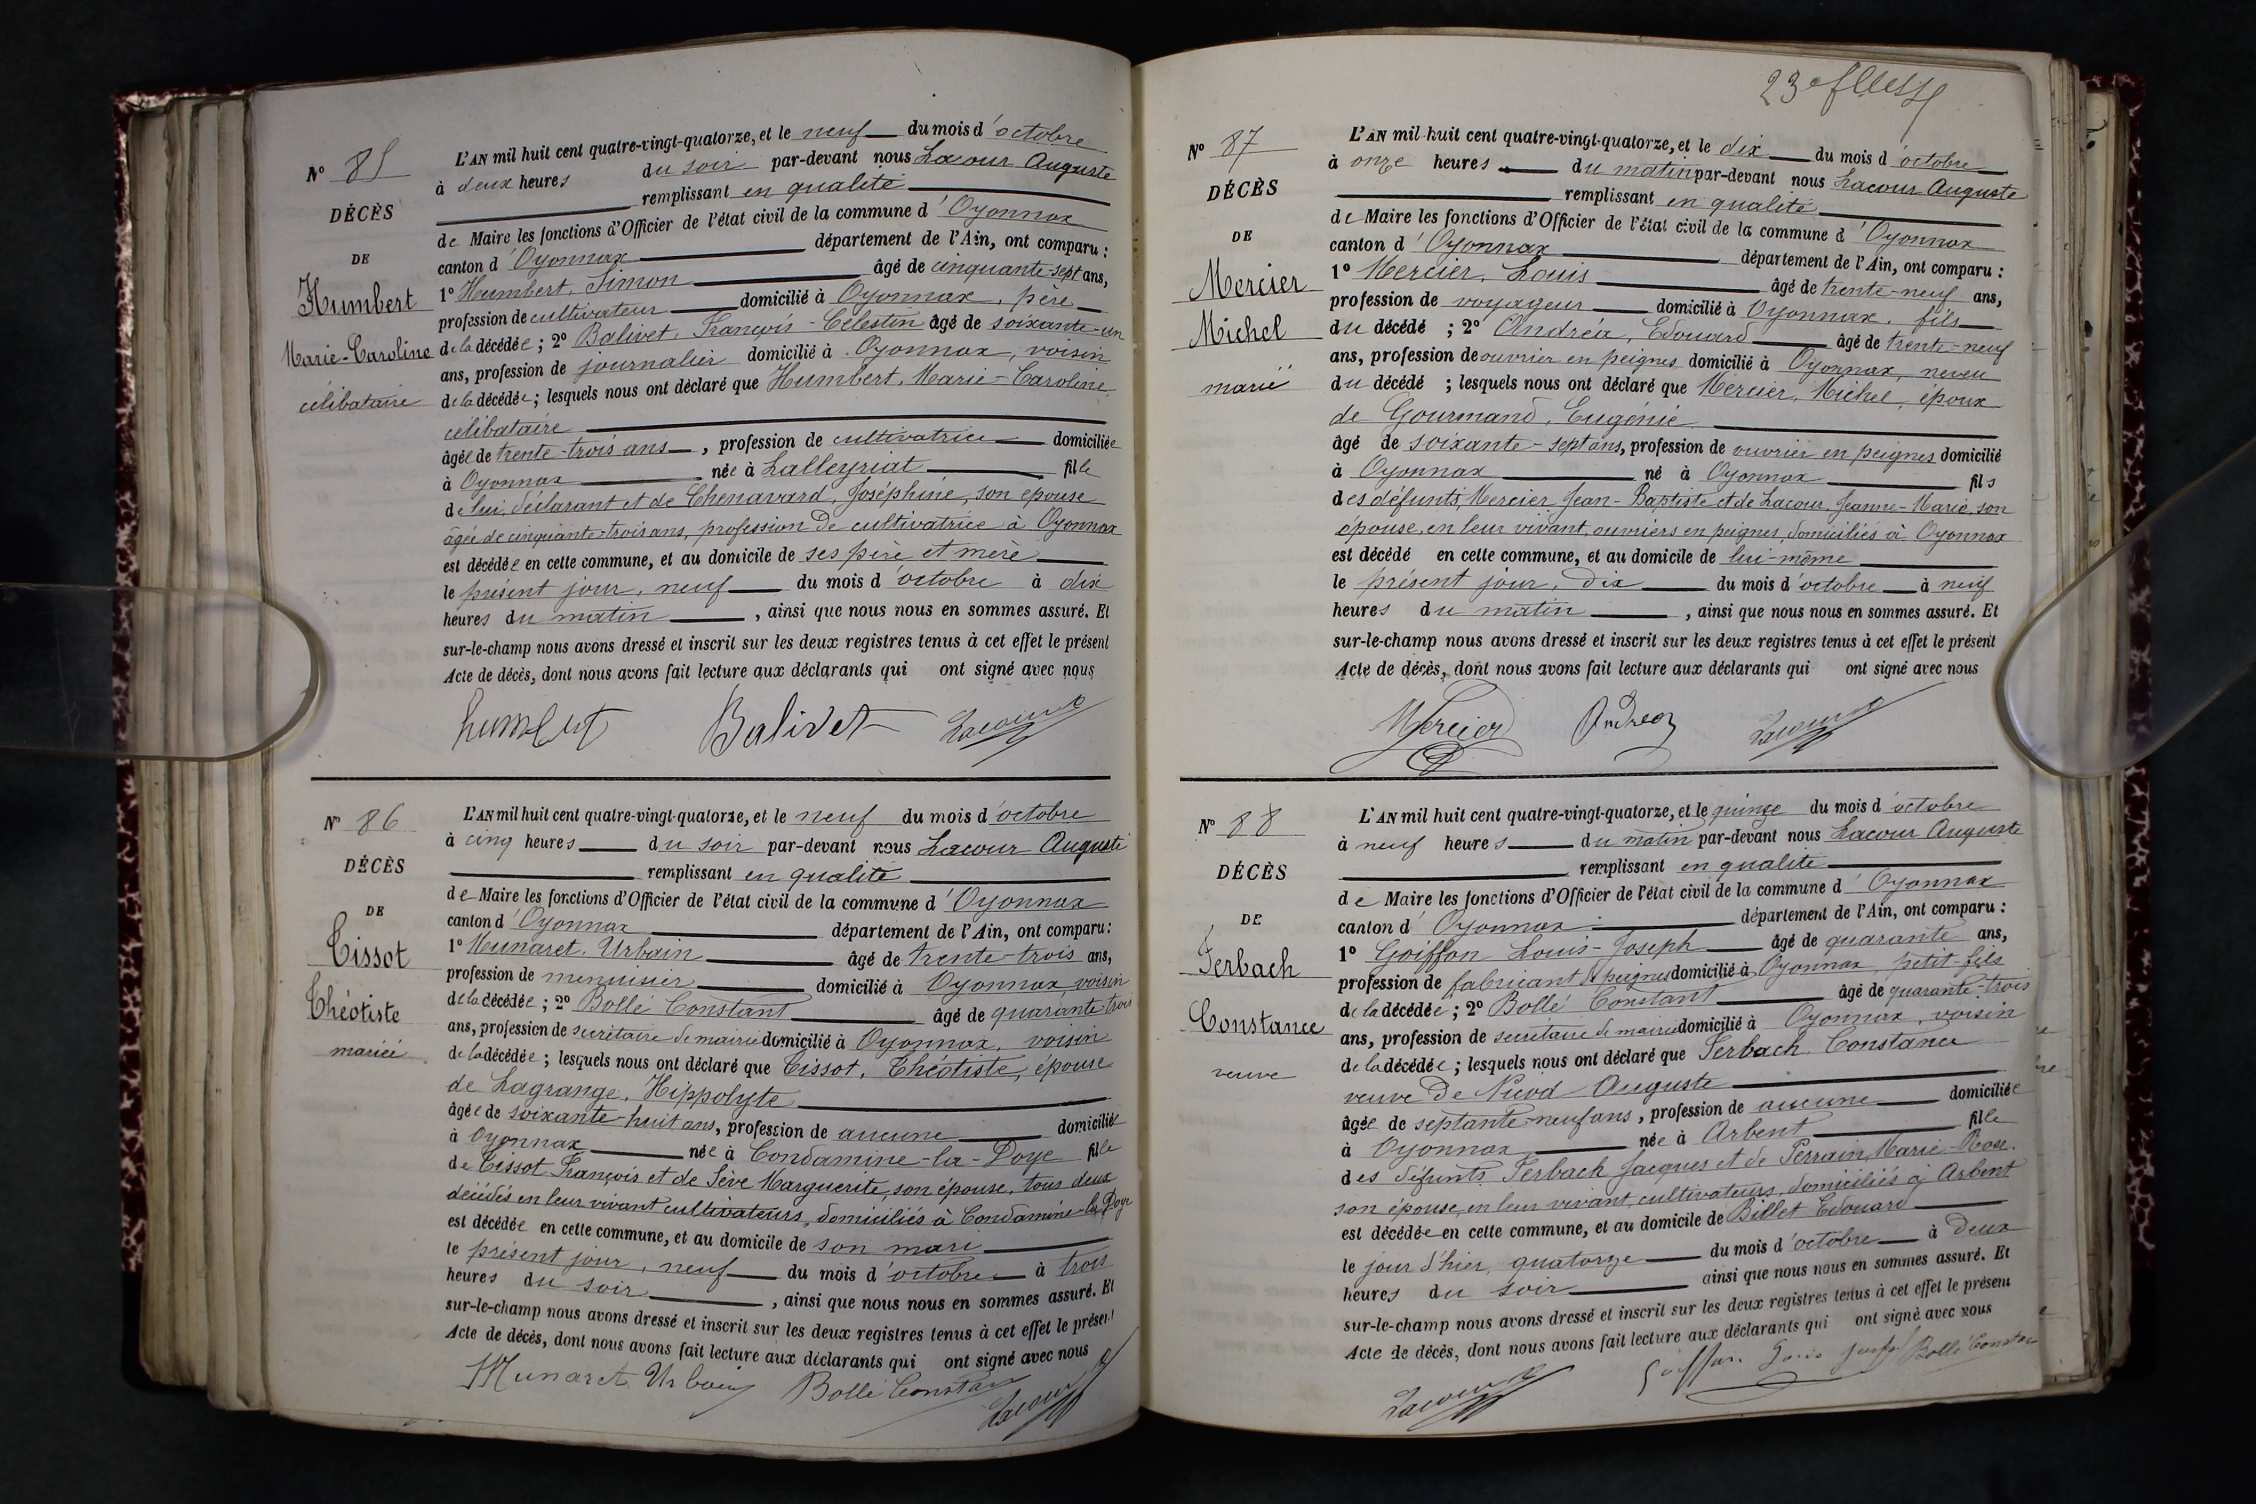 N° 85
DÉCÈS
DE
Humbert
Marie-Caroline
célibataire
L'AN mil huit cent quatre-vingt-quatorze, et le neuf du mois d'octobre
à deux heures du soir par-devant nous Lacour Auguste
remplissant en qualité
de Maire les fonctions d'Officier de l'état civil de la commune d'Oyonnax
canton d'Oyonnax département de l'Ain, ont comparu :
1° Humbert, Simon âgé de cinquante-sept ans,
profession de cultivateur domicilié à Oyonnax, père
de la décédée ; 2° Balivet, François-Célestin âgé de soixante-un
ans, profession de journalier domicilié à Oyonnax, voisin
de la décédée ; lesquels nous ont déclaré que Humbert, Marie-Caroline,
célibataire
âgée de trente-trois ans, profession de cultivatrice domiciliée
à Oyonnax née à Lalleyriat fille
de lui, déclarant et de Chenavard, Joséphine, son épouse
âgée de cinquante-trois ans, profession de cultivatrice à Oyonnax
est décédée en cette commune, et au domicile de ses père et mère
le présent jour, neuf du mois d'octobre à dix
heures du matin, ainsi que nous nous en sommes assuré. Et
sur-le-champ nous avons dressé et inscrit sur les deux registres tenus à cet effet le présent
Acte de décès, dont nous avons fait lecture aux déclarants qui ont signé avec nous
humbert Balivet Lacour A
N° 86
DÉCÈS
DE
Tissot
Théotiste
mariée
L'AN mil huit cent quatre-vingt-quatorze, et le neuf du mois d'octobre
à cinq heures du soir par-devant nous Lacour Auguste
remplissant en qualité
de Maire les fonctions d'Officier de l'état civil de la commune d'Oyonnax
canton d'Oyonnax département de l'Ain, ont comparu :
1° Munaret, Urbain âgé de trente-trois ans,
profession de menuisier domicilié à Oyonnax voisin
de la décédée ; 2° Bollé Constant âgé de quarante-trois
ans, profession de secrétaire de mairie domicilié à Oyonnax, voisin
de la décédée ; lesquels nous ont déclaré que Tissot, Théotiste, épouse
de Lagrange, Hippolyte
âgée de soixante-huit ans, profession de aucune domiciliée
à Oyonnax née à Condamine-la-Doye fille
de Tissot François et de Sève Marguerite, son épouse, tous deux
décédés en leur vivant cultivateurs, domiciliés à Condamine-la-Doye
est décédée en cette commune, et au domicile de son mari
le présent jour, neuf du mois d'octobre à trois
heures du soir, ainsi que nous nous en sommes assuré. Et
sur-le-champ nous avons dressé et inscrit sur les deux registres tenus à cet effet le présent
Acte de décès, dont nous avons fait lecture aux déclarants qui ont signé avec nous
Munaret Urbain Bollé Constant Lacour A
23e
N° 87
DÉCÈS
DE
Mercier
Michel
marié
L'AN mil huit cent quatre-vingt-quatorze, et le dix du mois d'octobre
à onze heures du matin par-devant nous Lacour Auguste
remplissant en qualité
de Maire les fonctions d'Officier de l'état civil de la commune d'Oyonnax
canton d'Oyonnax département de l'Ain, ont comparu :
1° Mercier, Louis âgé de trente-neuf ans,
profession de voyageur domicilié à Oyonnax, fils
du décédé ; 2° Andréa, Edouard âgé de trente-neuf
ans, profession de ouvrier en peignes domicilié à Oyonnax, neveu
du décédé ; lesquels nous ont déclaré que Mercier, Michel, époux
de Gourmand, Eugénie
âgé de soixante-sept ans, profession de ouvrier en peignes domicilié
à Oyonnax né à Oyonnax fils
des défunts, Mercier Jean-Baptiste et de Lacour, Jeanne-Marie, son
épouse, en leur vivant, ouvriers en peignes, domiciliés à Oyonnax
est décédé en cette commune, et au domicile de lui-même
le présent jour, dix du mois d'octobre à neuf
heures du matin, ainsi que nous nous en sommes assuré. Et
sur-le-champ nous avons dressé et inscrit sur les deux registres tenus à cet effet le présent
Acte de décès, dont nous avons fait lecture aux déclarants qui ont signé avec nous
Mercier Andrea Lacour A
N° 88
DÉCÈS
DE
Ferbach
Constance
veuve
L'AN mil huit cent quatre-vingt-quatorze, et le quinze du mois d'octobre
à neuf heures du matin par-devant nous Lacour Auguste
remplissant en qualité
de Maire les fonctions d'Officier de l'état civil de la commune d'Oyonnax
canton d'Oyonnax département de l'Ain, ont comparu :
1° Goiffon Louis-Joseph âgé de quarante ans,
profession de fabricant de peignes domicilié à Oyonnax petit fils
de la décédée ; 2° Bollé Constant âgé de quarante-trois
ans, profession de secrétaire de mairie domicilié à Oyonnax, voisin
de la décédée ; lesquels nous ont déclaré que Ferbach Constance
veuve De Nicod Auguste
âgée de septante-neuf ans, profession de aucune domiciliée
à Oyonnax née à Arbent fille
des défunts Ferbach Jacques et de Perrain Marie-Rose,
son épouse, en leur vivant, cultivateurs, domiciliés à Arbent
est décédée en cette commune, et au domicile de Billet Edouard
le jour d'hier, quatorze du mois d'octobre à deux
heures du soir ainsi que nous nous en sommes assuré. Et
sur-le-champ nous avons dressé et inscrit sur les deux registres tenus à cet effet le présent
Acte de décès, dont nous avons fait lecture aux déclarants qui ont signé avec nous
Lacour A Goiffon Louis Joseph Bollé Constant